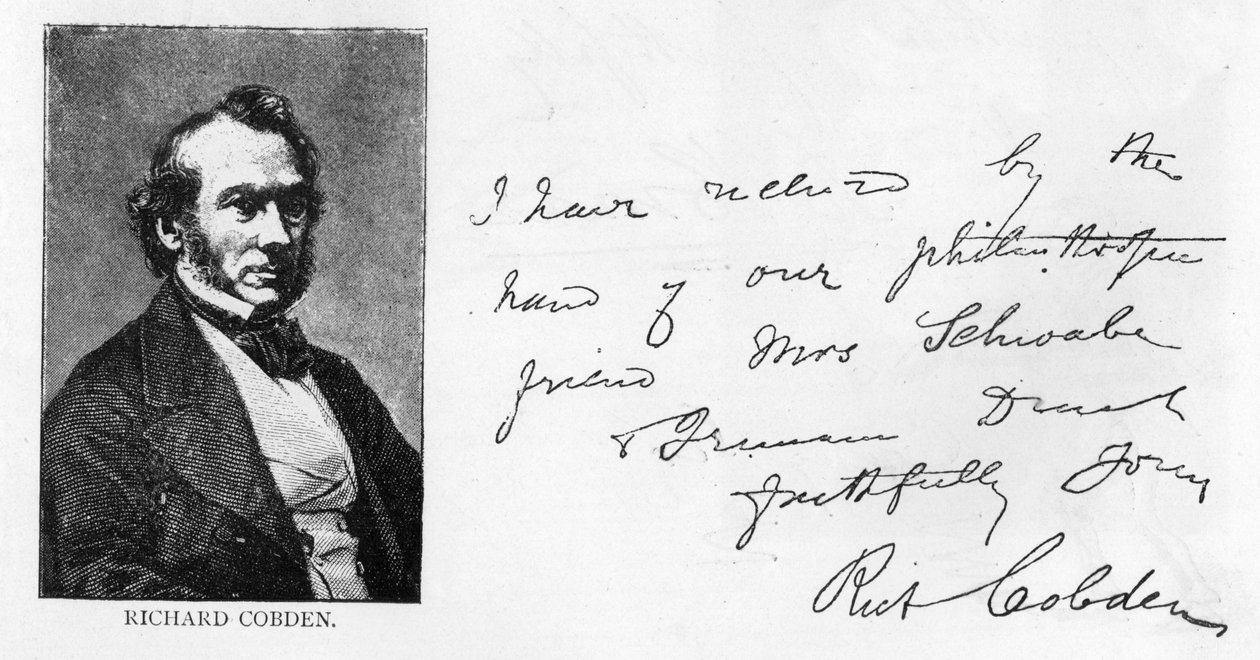 RICHARD COBDEN.
I have received by the
hand of our philanthropic
friend Mrs Schwabe
& I remain
faithfully Yours
Richd Cobden